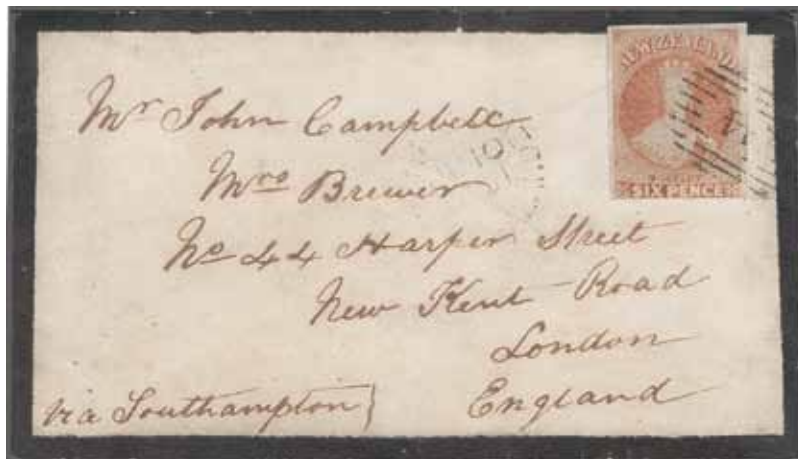 NEW ZEALAND
SIX PENCE
Mr John Campbell
Mrs Brewer
No 44 Harper Street
New Kent Road
London
England
via Southampton